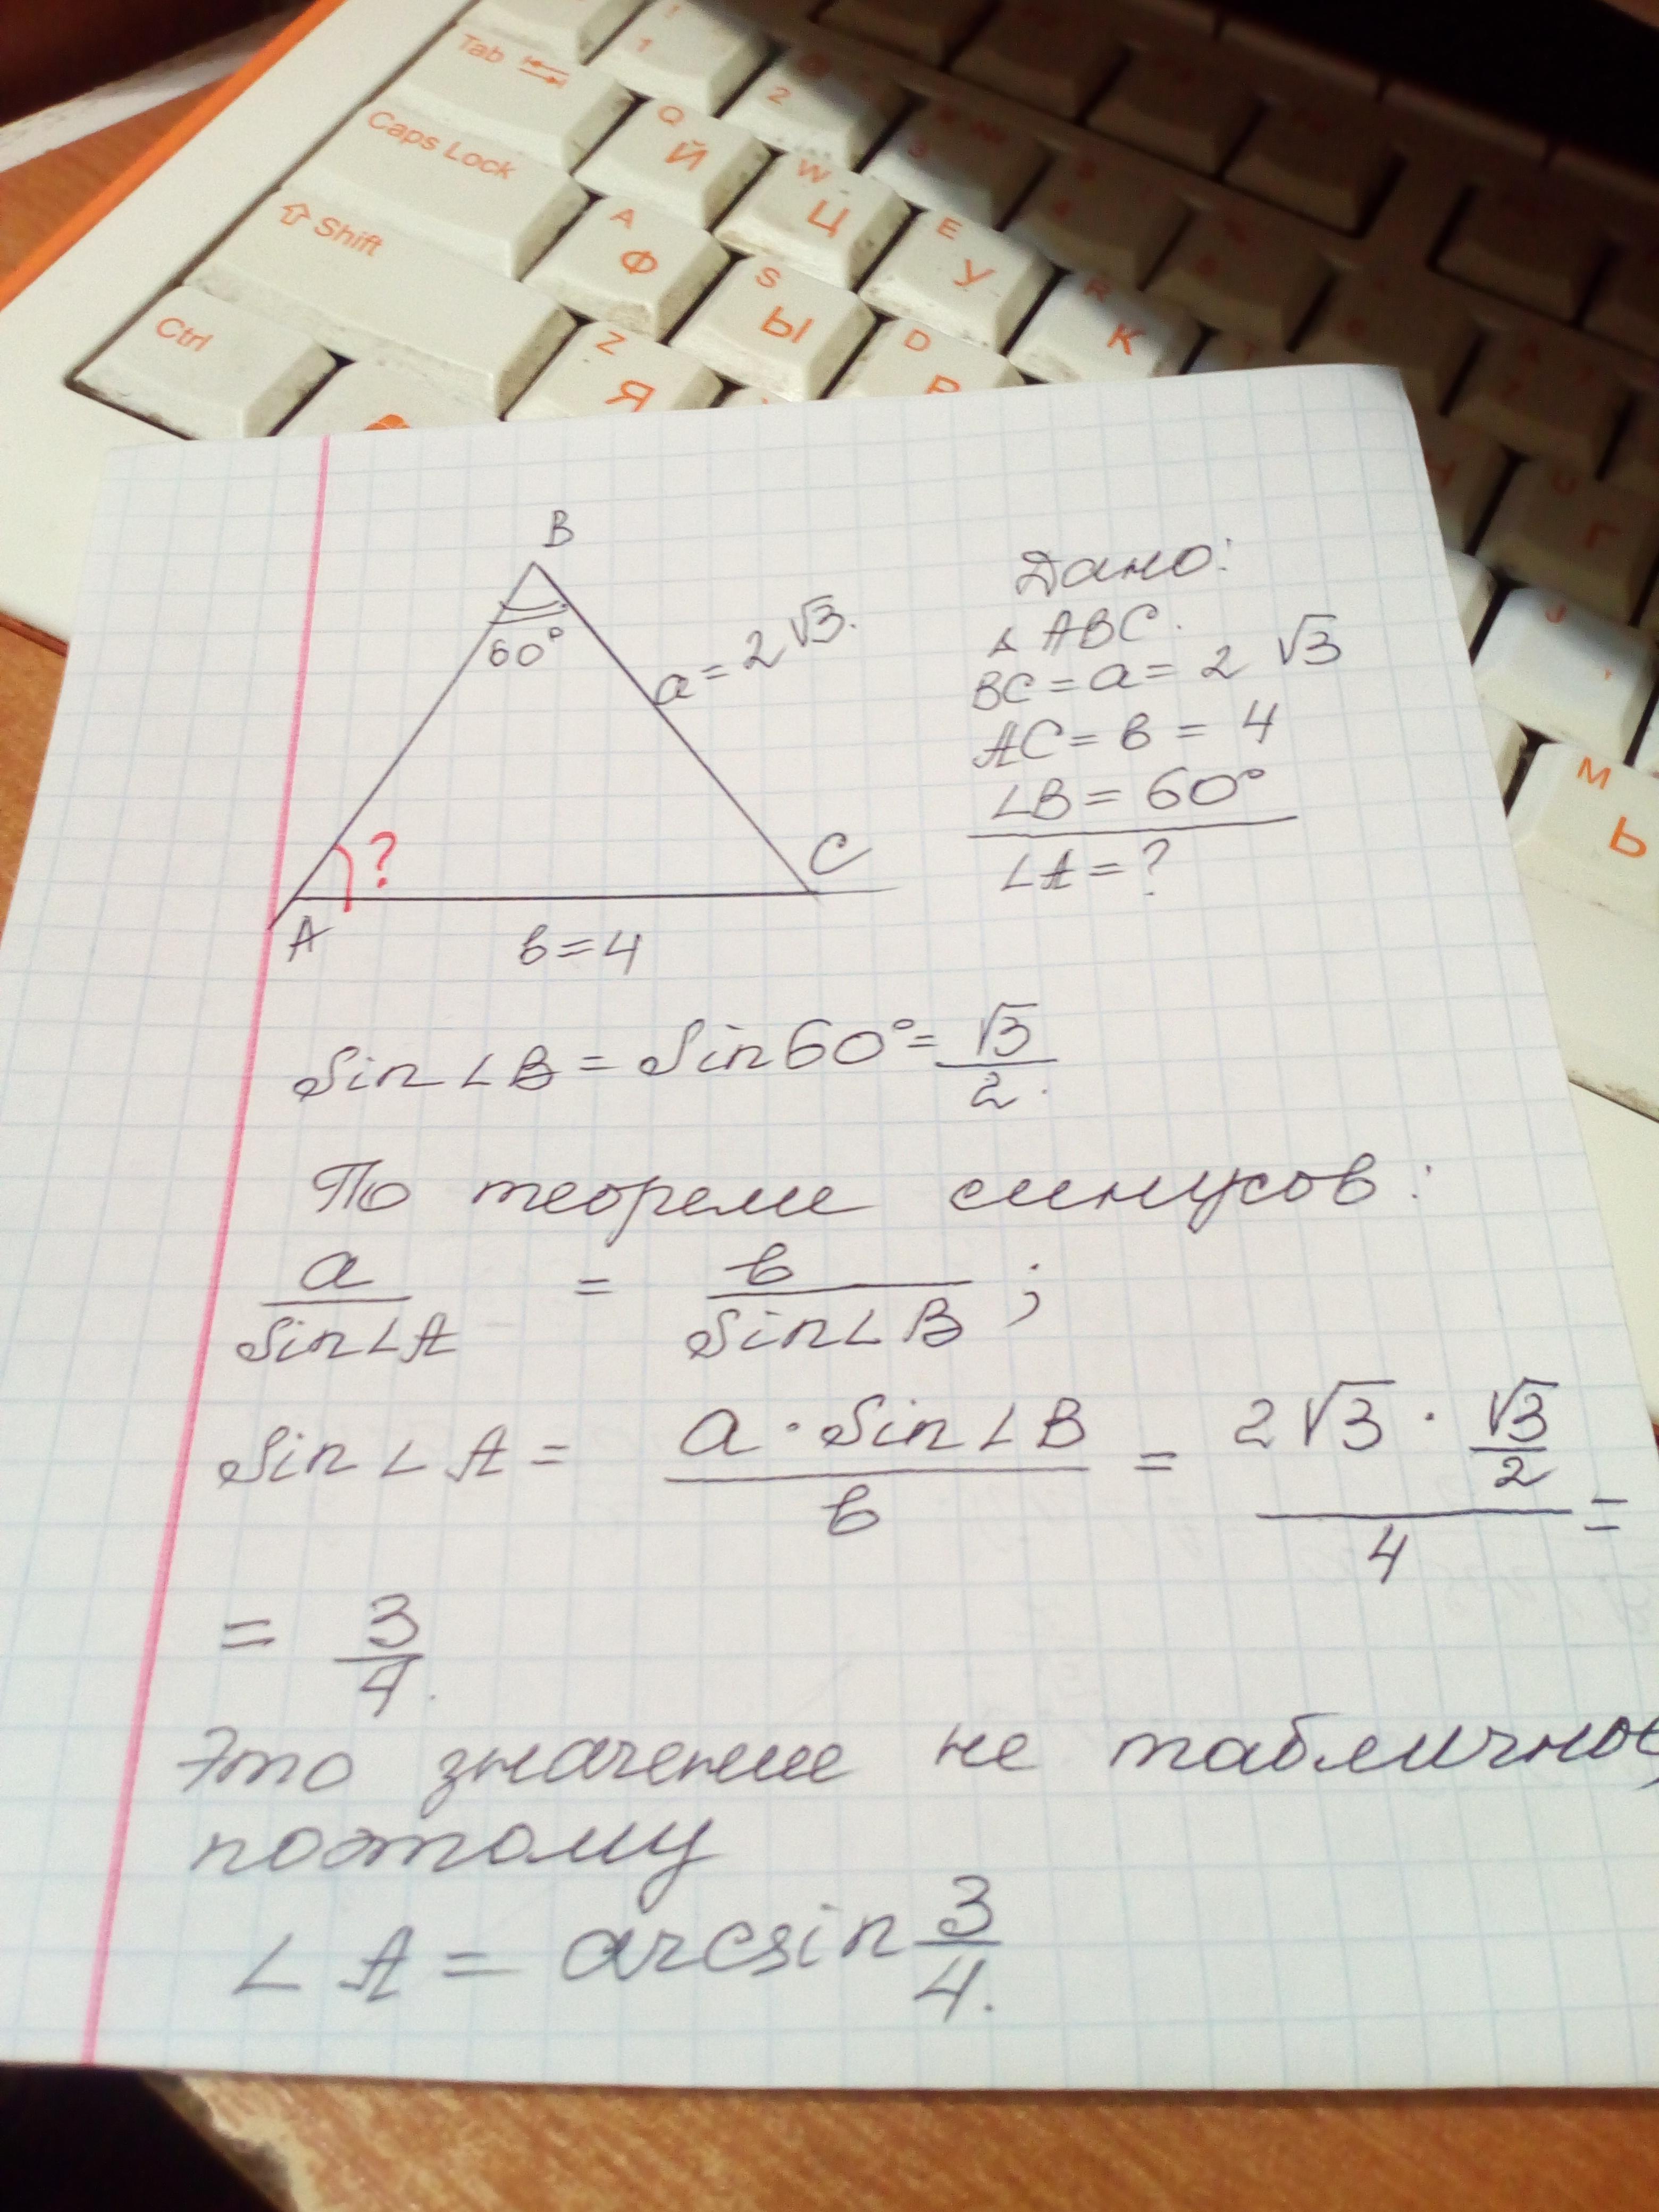 ! 1
Tab
2
Caps Lock
Q Й
W Ц
Shift
A Ф
E У
Ctrl
S Ы
R К
Z Я
D В
U Г
J
M Ь
B
60°
a = 2√3.
?
C
A
в = 4
Дано:
△ ABC.
BC = a = 2√3
AC = в = 4
∠B = 60°
∠A = ?
Sin∠B = Sin60° = √3/2.
По теореме синусов:
a/Sin∠A = в/Sin∠B ;
Sin∠A = a · Sin∠B/в = 2√3 · √3/2 / 4 =
= 3/4.
Это значение не табличное,
поэтому
∠A = arcsin 3/4.